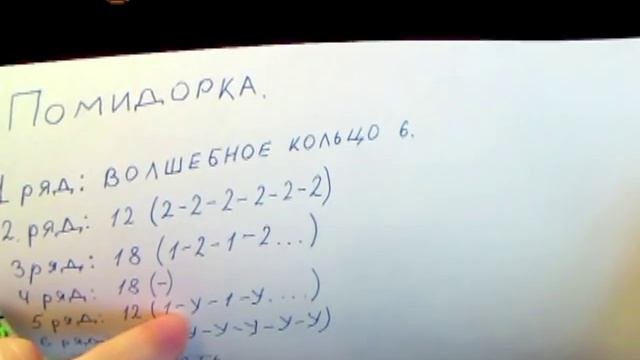 ПОМИДОРКА.
1 РЯД: ВОЛШЕБНОЕ КОЛЬЦО 6.
2. РЯД: 12 (2-2-2-2-2-2)
3 РЯД: 18 (1-2-1-2...)
4 РЯД: 18 (-)
5 РЯД: 12 (1-У-1-У....)
У-У-У-У)